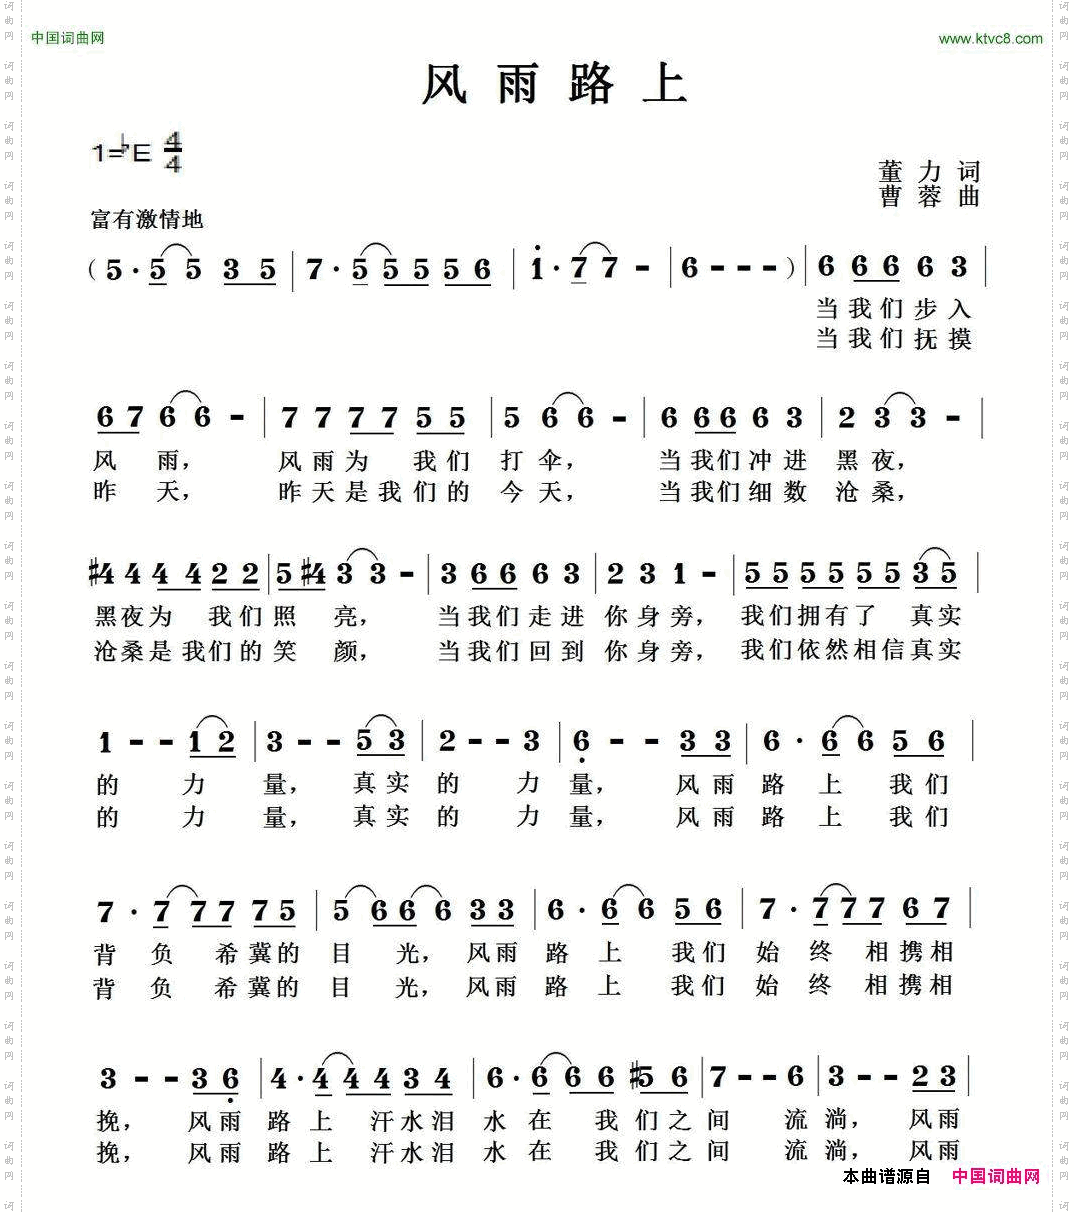 中国词曲网 www.ktvc8.com
风雨路上
1=♭E 4/4
董力词
曹蓉曲
富有激情地
( 5 · 5 5 3 5 | 7 · 5 5 5 5 6 | 1 · 7 7 - | 6 - - - ) | 6 6 6 6 3 |
当我们步入
当我们抚摸
6 7 6 6 - | 7 7 7 7 5 5 | 5 6 6 - | 6 6 6 6 3 | 2 3 3 - |
风 雨, 风雨为 我们 打伞, 当我们冲进 黑夜,
昨 天, 昨天是我们的 今天, 当我们细数 沧桑,
#4 4 4 4 2 2 | 5 #4 3 3 - | 3 6 6 6 3 | 2 3 1 - | 5 5 5 5 5 5 3 5 |
黑夜为 我们 照 亮, 当我们走进 你身旁, 我们拥有了 真实
沧桑是我们的 笑 颜, 当我们回到 你身旁, 我们依然相信真实
1 - - 1 2 | 3 - - 5 3 | 2 - - 3 | 6 - - 3 3 | 6 · 6 6 5 6 |
的 力 量, 真实 的 力 量, 风雨 路 上 我们
的 力 量, 真实 的 力 量, 风雨 路 上 我们
7 · 7 7 7 7 5 | 5 6 6 6 3 3 | 6 · 6 6 5 6 | 7 · 7 7 7 6 7 |
背 负 希冀的 目 光, 风雨 路 上 我们 始 终 相携相
背 负 希冀的 目 光, 风雨 路 上 我们 始 终 相携相
3 - - 3 6 | 4 · 4 4 4 3 4 | 6 · 6 6 6 #5 6 | 7 - - 6 | 3 - - 2 3 |
挽, 风雨 路 上 汗水泪 水 在 我们之间 流 淌, 风雨
挽, 风雨 路 上 汗水泪 水 在 我们之间 流 淌, 风雨
本曲谱源自 中国词曲网